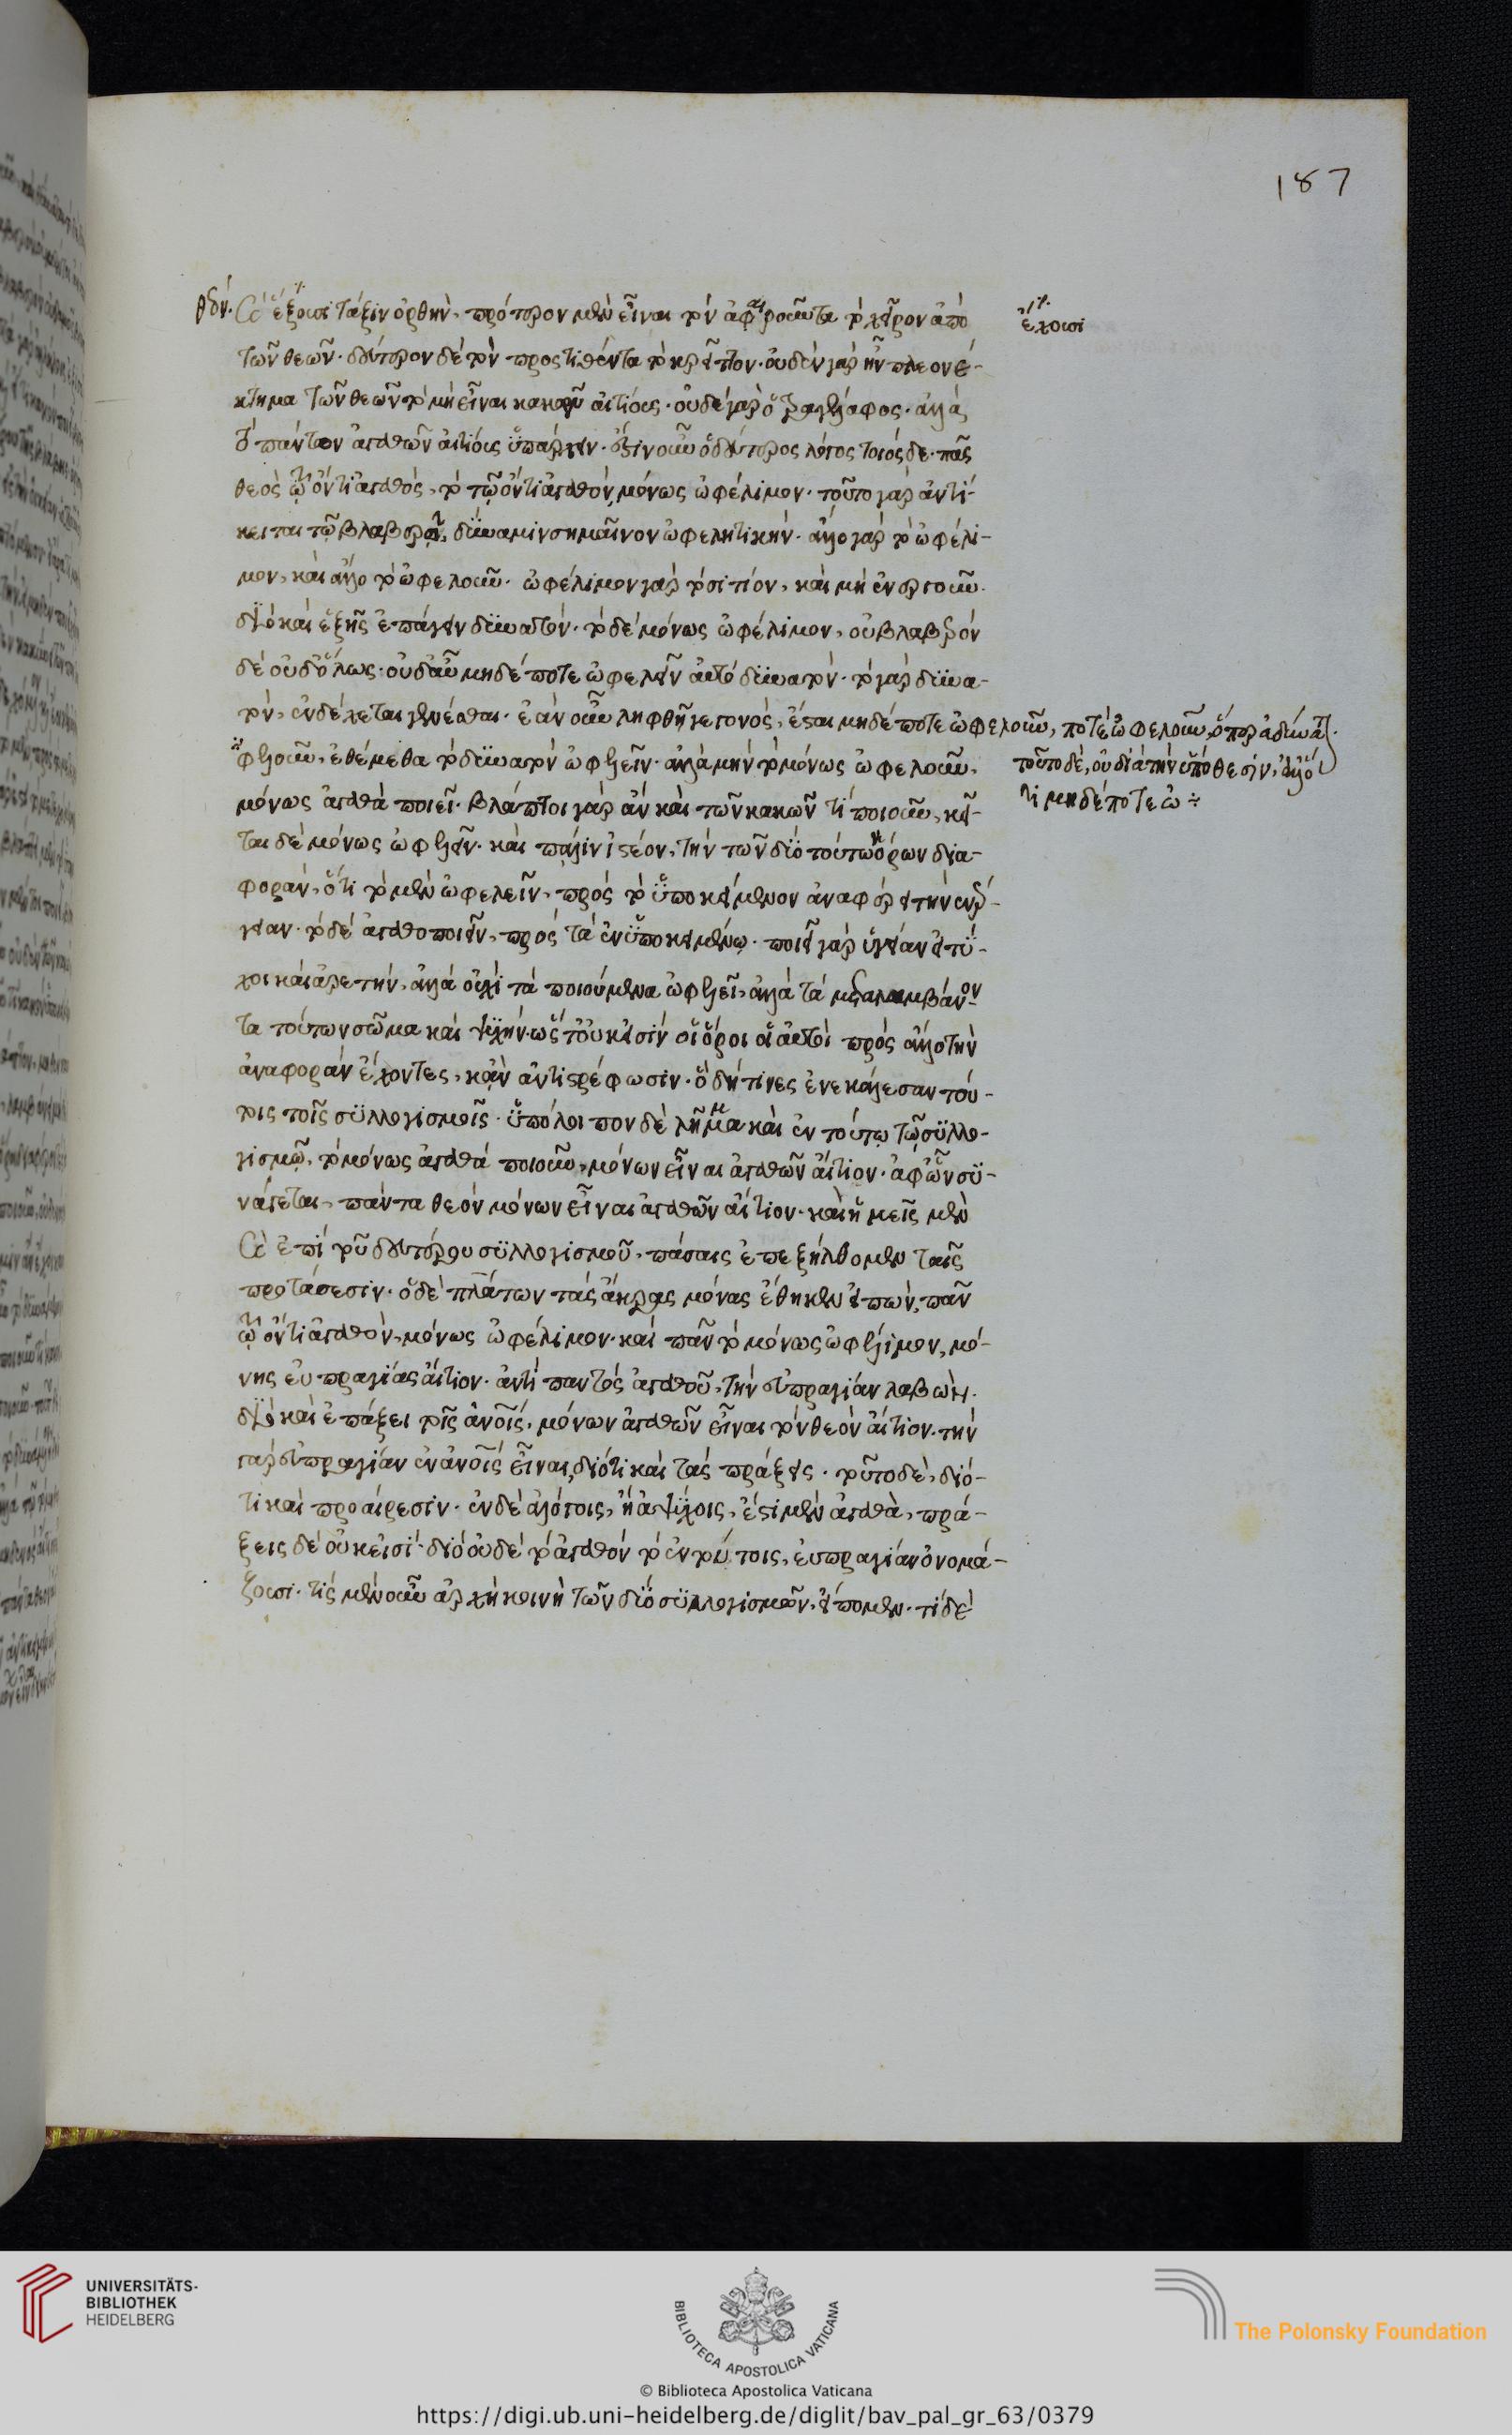 187
θεόν. καὶ ἕξουσι τάξιν ὀρθὴν, πρότερον μὲν εἶναι τὸν ἀφαιροῦντα τὸ χεῖρον ἀπὸ
ἔχουσι
τῶν θεῶν. δεύτερον δὲ τὸν προστιθέντα τὸ κρεῖττον. οὐδὲν γὰρ ἦν πλεονέ-
κτημα τῶν θεῶν τὸ μὴ εἶναι κακοῦ αἰτίους. οὐδὲ γὰρ ὁ τραγέλαφος. ἀλλὰ
τὸ πάντων ἀγαθῶν αἰτίους ὑπάρχειν. ἔστιν οὖν ὁ δεύτερος λόγος τοιόσδε. πᾶς
θεὸς τῷ ὄντι ἀγαθός, τὸ τῷ ὄντι ἀγαθόν, μόνως ὠφέλιμον. τοῦτο γὰρ ἀντί-
κειται τῷ βλαβερῷ, δύναμιν σημαῖνον ὠφελητικήν. ἄλλο γὰρ τὸ ὠφέλι-
μον, καὶ ἄλλο τὸ ὠφελοῦν. ὠφέλιμον γὰρ τὸ σιτίον, καὶ μὴ ἐνεργοῦν.
διὸ καὶ ἑξῆς ἐπάγειν δυνατόν. τὸ δὲ μόνως ὠφέλιμον, οὐ βλαβερόν
δὲ οὐδ' ὅλως. οὐδ' ἂν μηδέποτε ὠφελεῖν αὐτὸ δυνατόν. τὸ γὰρ δυνα-
τὸν, ἐνδέχεται γενέσθαι. ἐὰν οὖν ληφθῇ γεγονός, ἔσται μηδέποτε ὠφελοῦν, ποτὲ ὠφελοῦν, ὅπερ ἀδύνατ.
ὠφελοῦν, ἐθέμεθα τὸ δυνατὸν ὠφελεῖν. ἀλλὰ μὴν τὸ μόνως ὠφελοῦν,
τοῦτο δὲ, οὐ διὰ τὴν ὑπόθεσιν, ἀλλ' ὅ
μόνως ἀγαθὰ ποιεῖ. βλάπτοι γὰρ ἂν καὶ τῶν κακῶν τὶ ποιοῦν, κεῖ-
τι μηδέποτε ὠ
ται δὲ μόνως ὠφελεῖν. καὶ πάλιν ἰστέον, τὴν τῶν δύο τούτων ὅρων δια-
φοράν, ὅτι τὸ μὲν ὠφελεῖν, πρὸς τὸ ὑποκείμενον ἀναφέρει τὴν ἐνέρ-
γειαν. τὸ δὲ ἀγαθοποιεῖν, πρὸς τὰ ἐν ὑποκειμένῳ. ποιεῖ γὰρ ὑγείαν εἰ τύ-
χοι καὶ ἀρετήν, ἀλλὰ οὐχὶ τὰ ποιούμενα ὠφελεῖ, ἀλλὰ τὰ μεταλαμβάνον-
τα τούτων σῶμα καὶ ψυχήν. ὥστ' οὐκ εἰσὶν οἱ ὅροι οἱ αὐτοὶ πρὸς ἄλλο τὴν
ἀναφορὰν ἔχοντες, κἂν ἀντιστρέφωσιν. ὃ δή τινες ἐνεκάλεσαν τού-
τοις τοῖς συλλογισμοῖς. ὑπόλοιπον δὲ λῆμμα καὶ ἐν τούτῳ τῷ συλλο-
γισμῷ, τὸ μόνως ἀγαθά ποιοῦν, μόνων εἶναι ἀγαθῶν αἴτιον. ἀφ' ὧν συ-
νάγεται, πάντα θεόν μόνων εἶναι ἀγαθῶν αἴτιον. καὶ ἡμεῖς μὲν
καὶ ἐπὶ τοῦ δευτέρου συλλογισμοῦ, πάσαις ἐπεξήλθομεν ταῖς
προτάσεσιν. ὁ δὲ πλάτων τὰς ἄκρας μόνας ἔθηκεν εἰπών, πᾶν
τῷ ὄντι ἀγαθόν, μόνως ὠφέλιμον. καὶ πᾶν τὸ μόνως ὠφελίμον, μό-
νης εὐπραγίας αἴτιον. ἀντὶ παντός ἀγαθοῦ, τὴν εὐπραγίαν λαβών.
διὸ καὶ ἐπάξει τοῖς ἀνοῖς, μόνων ἀγαθῶν εἶναι τὸν θεὸν αἴτιον. τὴν
γὰρ εὐπραγίαν ἐν ἀνοῖς εἶναι, διότι καὶ τὰς πράξεις. τοῦτο δὲ, διό-
τι καὶ προαίρεσιν. ἐν δὲ ἀλόγοις, ἢ ἀψύχοις, ἔστι μὲν ἀγαθὰ, πρά-
ξεις δὲ οὐκ εἰσί. διὸ οὐδὲ τὸ ἀγαθόν τὸ ἐν τούτοις, εὐπραγίαν ὀνομά-
ζουσι. τίς μὲν οὖν ἀρχὴ κοινὴ τῶν δύο συλλογισμῶν, εἴπομεν. τί δὲ
UNIVERSITÄTS-
BIBLIOTHEK
HEIDELBERG
BIBLIOTECA APOSTOLICA VATICANA
The Polonsky Foundation
© Biblioteca Apostolica Vaticana
https://digi.ub.uni-heidelberg.de/diglit/bav_pal_gr_63/0379